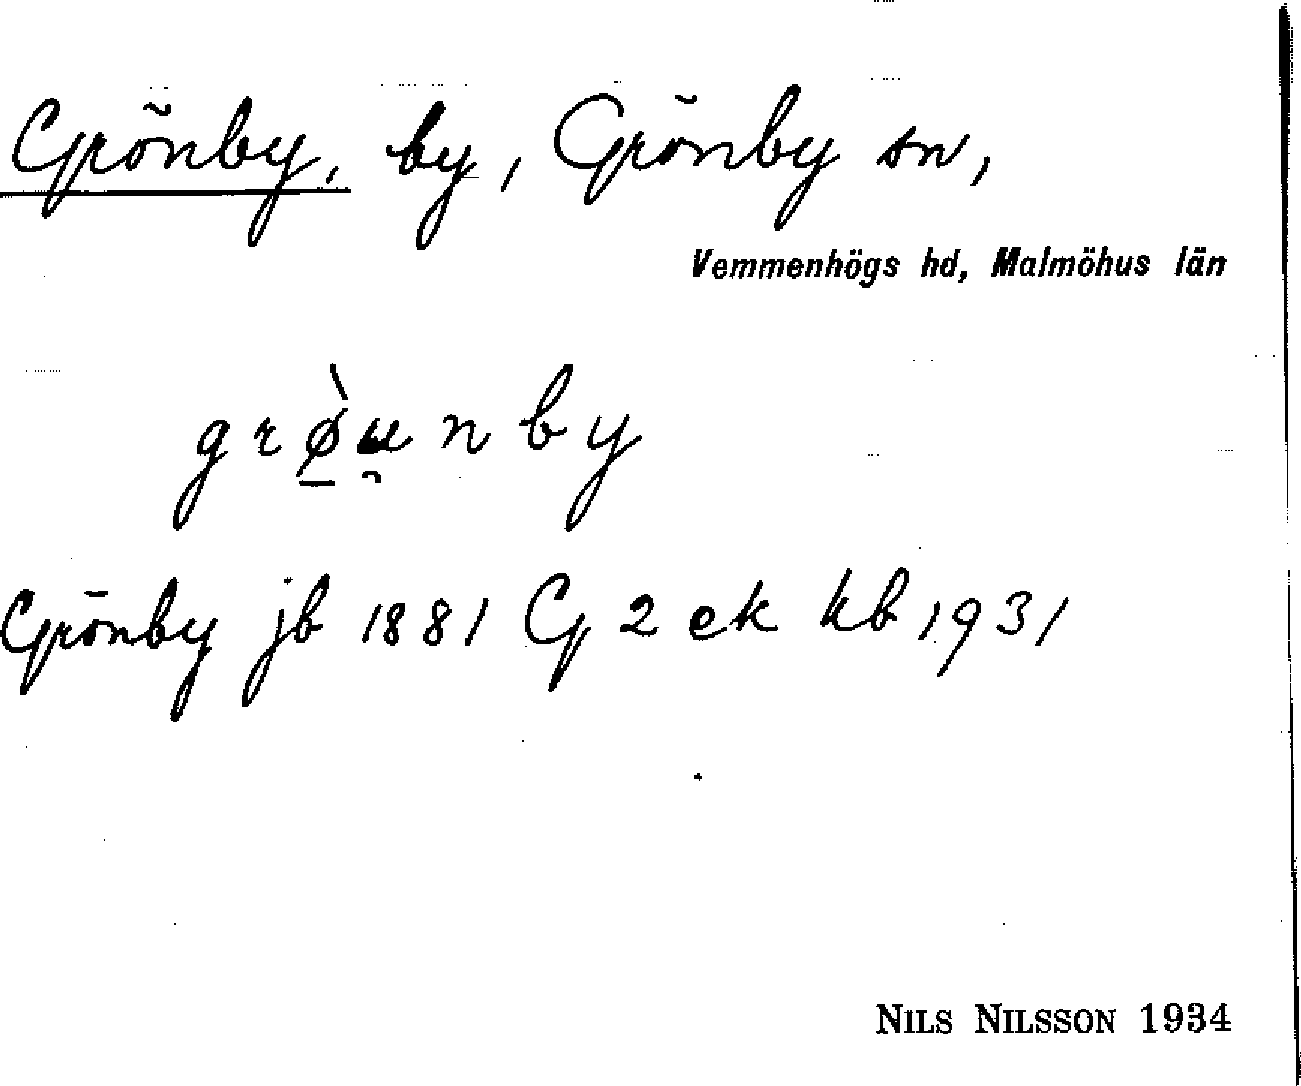 Grönby, by, Grönby sn,
Vemmenhögs hd, Malmöhus län
grø̱̀u̯nby
Grönby jb 1881 G 2 ek kb 1931
NILS NILSSON 1934